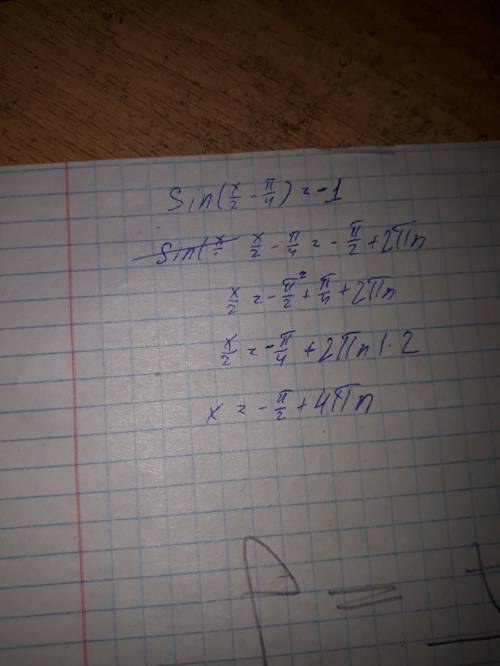 sin(x/2 - π/4) = -1
sin(x/ x/2 - π/4 = -π/2 + 2πn
x/2 = -π/2² + π/4 + 2πn
x/2 = -π/4 + 2πn | · 2
x = -π/2 + 4πn